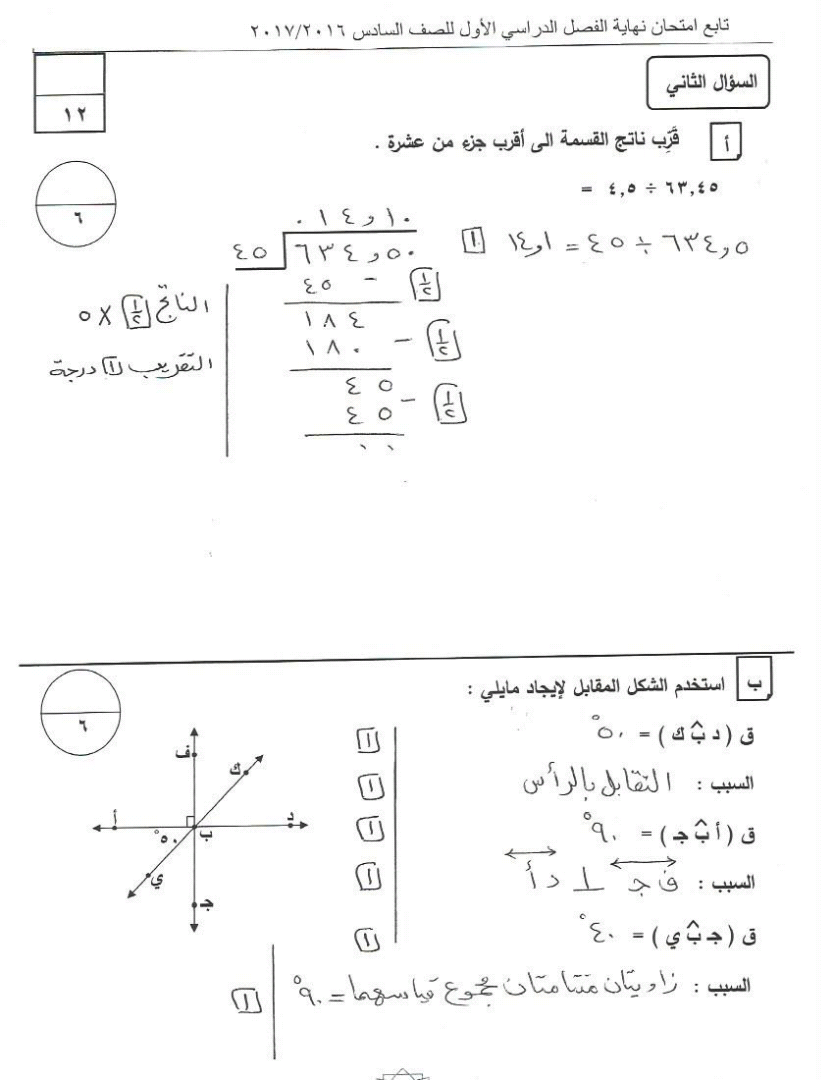 تابع امتحان نهاية الفصل الدراسي الأول للصف السادس ٢٠١٧/٢٠١٦
السؤال الثاني
١٢
أ قَرِّب ناتج القسمة الى أقرب جزء من عشرة .
٦٣,٤٥ ÷ ٤,٥ =
٦
٦٣٤,٥ ÷ ٤٥ = ١٤,١ ١
٠١٤,١٠
٤٥ ٦٣٤,٥٠
٤٥ - ١/٢
١٨٤
١٨٠ - ١/٢
٤٥
٤٥ - ١/٢
٠٠
الناتج ١/٢ × ٥
التقريب ١ درجة
ب استخدم الشكل المقابل لإيجاد مايلي :
٦
ق ( د ب ك ) = ٥٠° ١
السبب : التقابل بالرأس ١
ق ( أ ب ج ) = ٩٠° ١
السبب : ف ج ⊥ د أ ١
ق ( ج ب ي ) = ٤٠° ١
السبب : زاويتان متتامتان مجموع قياسهما = ٩٠° ١
ف
ك
أ
د
٥٠°
ب
ي
ج